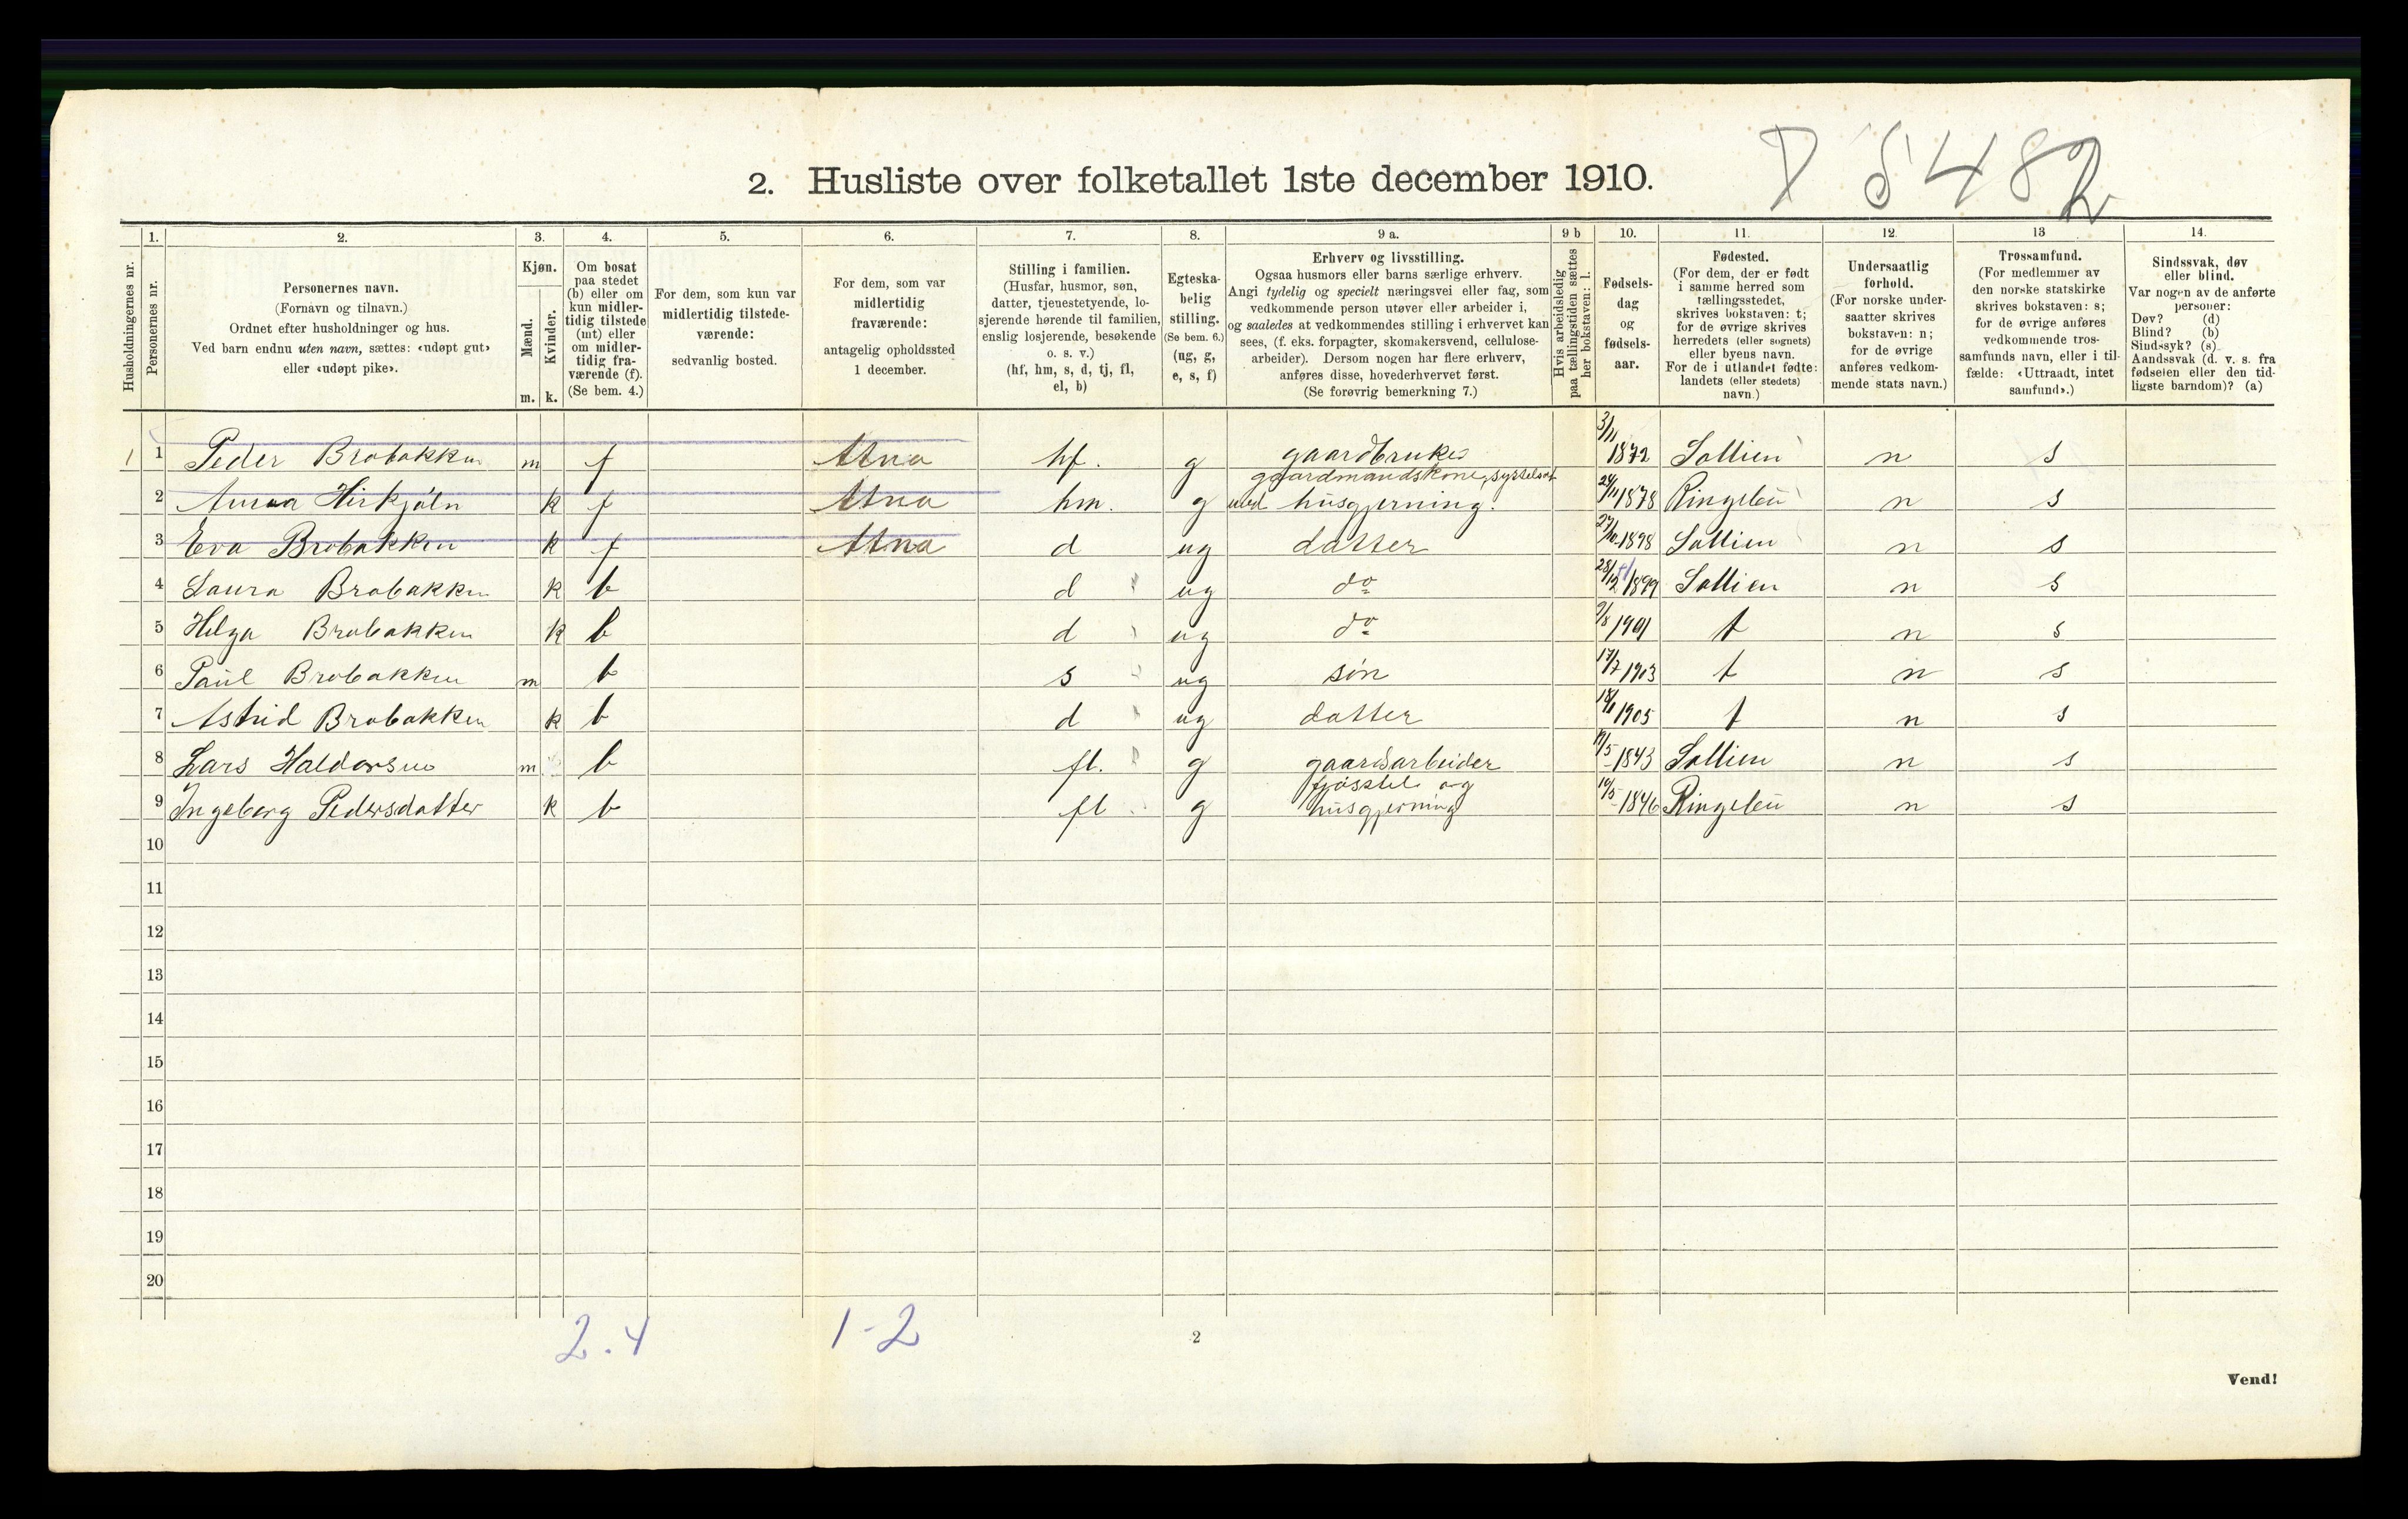 2. Husliste over folketallet 1ste december 1910.
5482
1. 2. 3. 4. 5. 6. 7. 8. 9 a. 9 b 10. 11. 12. 13 14.
Husholdningernes nr.
Personernes nr.
Personernes navn.
(Fornavn og tilnavn.)
Ordnet efter husholdninger og hus.
Ved barn endnu uten navn, sættes: «udøpt gut»
eller «udøpt pike».
Kjøn.
Mænd.
Kvinder.
m. k.
Om bosat
paa stedet
(b) eller om
kun midler-
tidig tilstede
(mt) eller
om midler-
tidig fra-
værende (f).
(Se bem. 4.)
For dem, som kun var
midlertidig tilstede-
værende:
sedvanlig bosted.
For dem, som var
midlertidig
fraværende:
antagelig opholdssted
1 december.
Stilling i familien.
(Husfar, husmor, søn,
datter, tjenestetyende, lo-
sjerende hørende til familien,
enslig losjerende, besøkende
o. s. v.)
(hf, hm, s, d, tj, fl,
el, b)
Egteska-
belig
stilling.
(Se bem. 6.)
(ug, g,
e, s, f)
Erhverv og livsstilling.
Ogsaa husmors eller barns særlige erhverv.
Angi tydelig og specielt næringsvei eller fag, som
vedkommende person utøver eller arbeider i,
og saaledes at vedkommendes stilling i erhvervet kan
sees, (f. eks. forpagter, skomakersvend, cellulose-
arbeider). Dersom nogen har flere erhverv,
anføres disse, hovederhvervet først.
(Se forøvrig bemerkning 7.)
Hvis arbeidsledig
paa tællingstiden sættes
her bokstaven: l.
Fødsels-
dag
og
fødsels-
aar.
Fødested.
(For dem, der er født
i samme herred som
tællingsstedet,
skrives bokstaven: t;
for de øvrige skrives
herredets (eller sognets)
eller byens navn.
For de i utlandet fødte:
landets (eller stedets)
navn.)
Undersaatlig
forhold.
(For norske under-
saatter skrives
bokstaven: n;
for de øvrige
anføres vedkom-
mende stats navn.)
Trossamfund.
(For medlemmer av
den norske statskirke
skrives bokstaven: s;
for de øvrige anføres
vedkommende tros-
samfunds navn, eller i til-
fælde: «Uttraadt, intet
samfund».)
Sindssvak, døv
eller blind.
Var nogen av de anførte
personer:
Døv? (d)
Blind? (b)
Sindssyk? (s)
Aandssvak (d. v. s. fra
fødselen eller den tid-
ligste barndom)? (a)
1 1 Peder Brobakken m f Atna hf. g gaardbruker 3/11 1872 Sollien n s
2 Hirkjøln k f Atna hm. g gaardmandskone, sysselsat med husgjerning. 24/11 1878 Ringebu n s
3 Eva Brobakken k f Atna d ug datter 27/10 1898 Sollien n s
4 Laura Brobakken k b d ug do 28/12 1899 Sollien n s
5 Helga Brobakken k b d ug do 9/8 1901 t n s
6 Paul Brobakken m b s ug søn 17/7 1903 t n s
7 Astrid Brobakken k b d ug datter 18/1 1905 t n s
8 Lars Haldorsen m b fl. g gaardsarbeider /5 1843 Sollien n s
9 Ingeborg Pedersdatter k b fl g fjøsstel og husgjerning 10/5 1846 Ringebu n s
10
11
12
13
14
15
16
17
18
19
20
2.4 1-2
2
Vend!